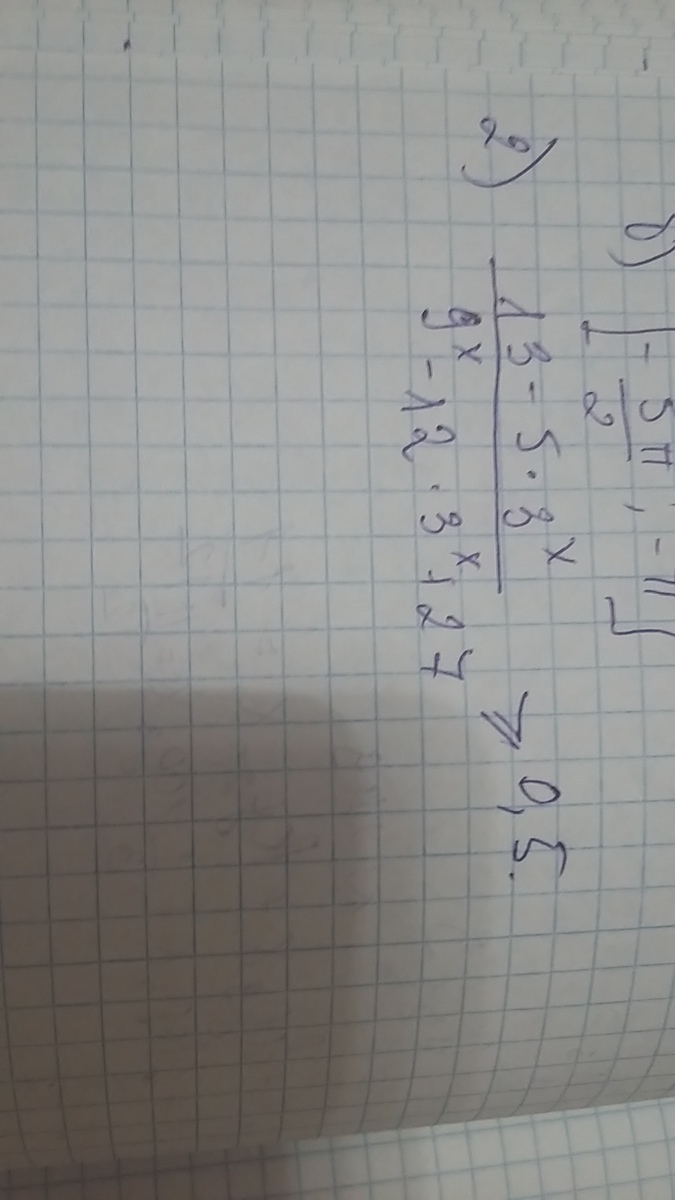 б) [-5π/2; -π]
2) (13 - 5·3^x)/(9^x - 12·3^x + 27) ≥ 0,5.